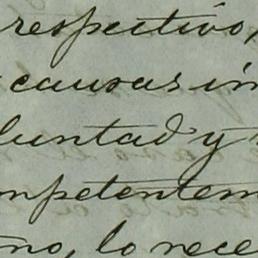 respectivo,
causas in
luntad y
mpetentem
no, lo nece